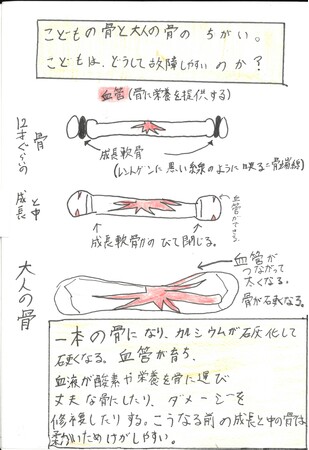 こどもの骨と大人の骨の ちがい。
こどもは、どうして故障しやすいのか?
血管(骨に栄養を提供する)
12才ぐらいの骨
成長軟骨
(レントゲンに黒い線のように映る=骨端線)
成長と中
血管ができる。
成長軟骨がのびて閉じる。
大人の骨
血管が
つながって
太くなる。
骨が硬くなる。
一本の骨になり、カルシウムが石灰化して
硬くなる。血管が育ち、
血液が酸素や栄養を骨に運び
丈夫な骨にしたり、ダメージを
修復したりする。こうなる前の成長と中の骨は
柔かいためけがしやすい。